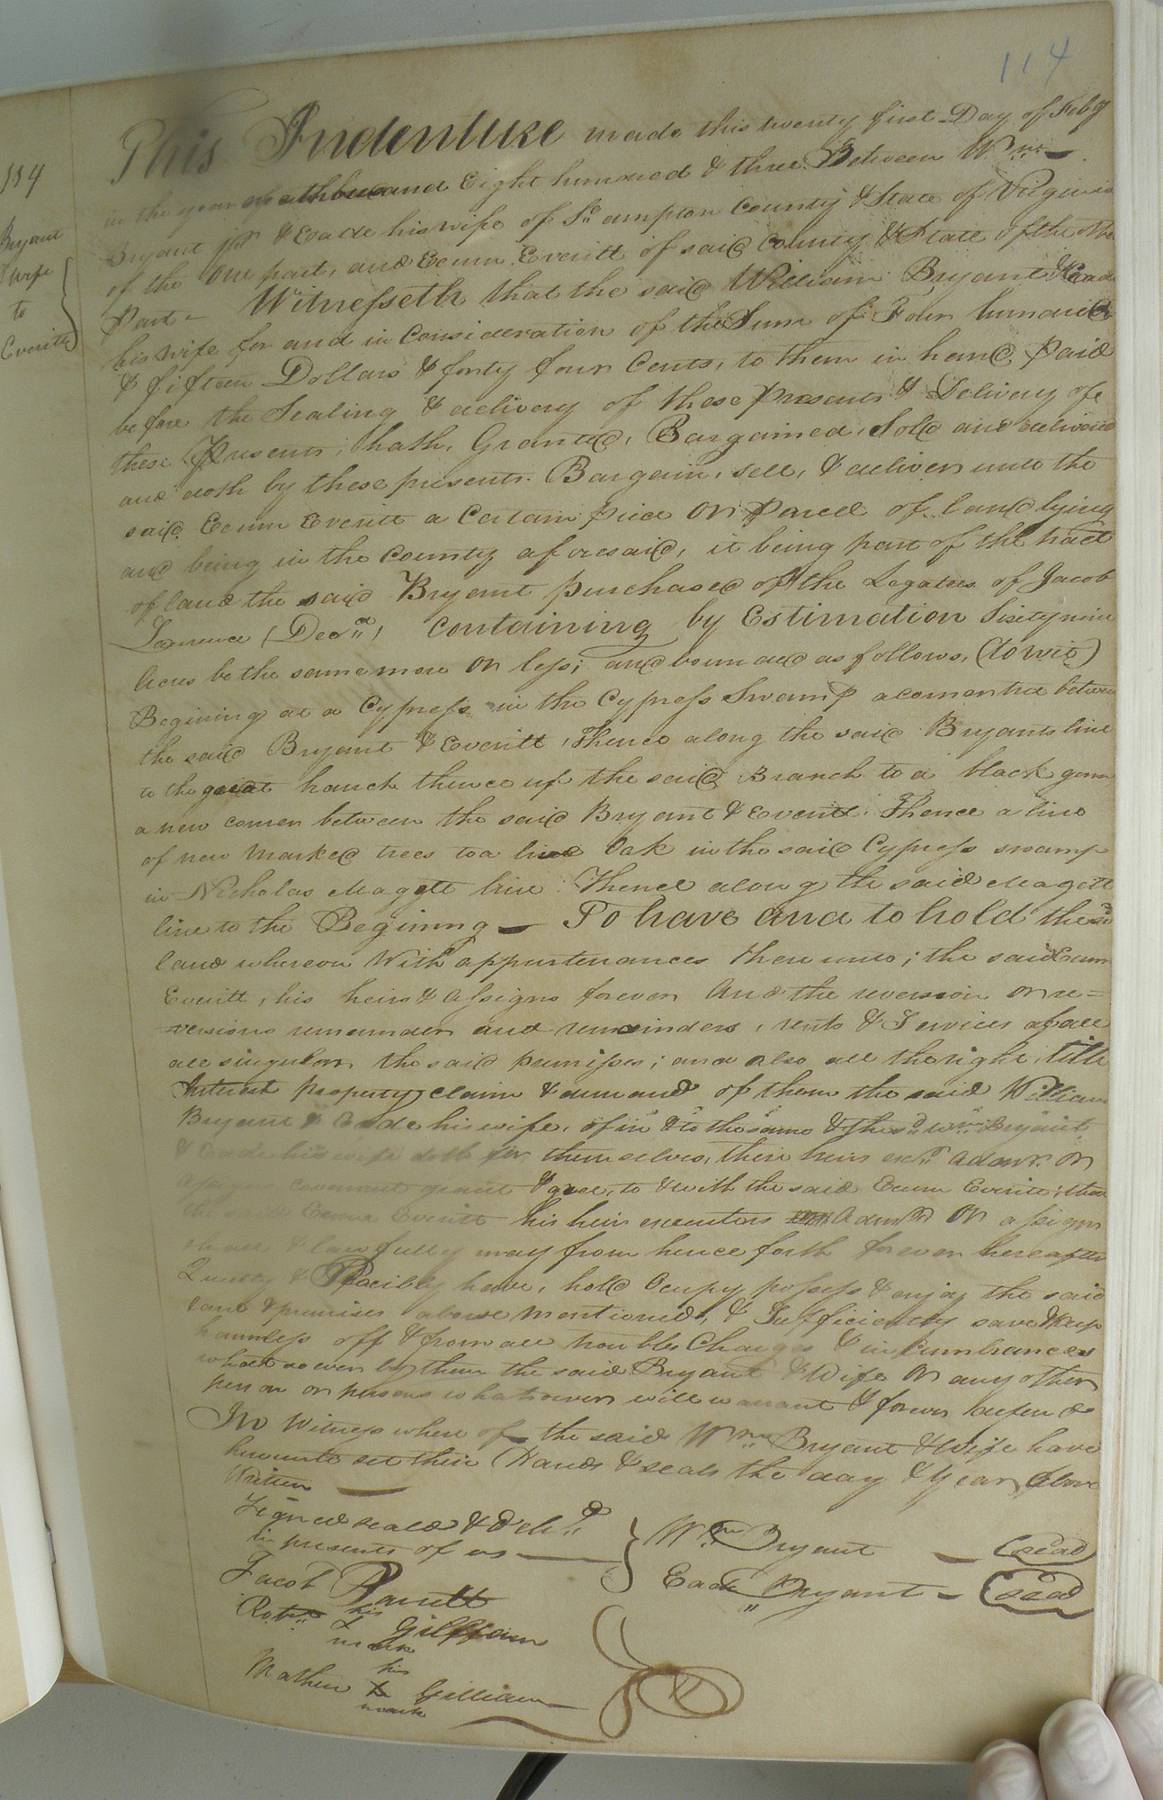 114
114
Bryant
& Wife
to
Everitt
This Indenture made this twenty first Day of Feby
in the year of thousand Eight hundred & three Between Wm
Bryant jnr & Eade his wife of So ampton County & State of Virginia
of the one part, and Exum Everitt of said County & State of the other
Part - Witnesseth that the said William Bryant & Eade
his Wife for and in Consideration of the Sum of Four hundred
& fifteen Dollars & forty four Cents, to them in hand, paid
before the Sealing & delivery of these presents & Delivery of
these Presents, hath, Granted, Bargained, Sold and delivered
and doth by these presents Bargain, sell, & deliver unto the
said Exum Everitt a Certain piece or Parcel of land lying
and being in the County aforesaid, it being part of the tract
of land the said Bryant purchased of the Legatees of Jacob
Larence (Decd) Containing by Estimation Sixty nine
Acres be the same more or less; and bounded as follows, (to wit)
Begining at a Cypress in the Cypress Swamp a corner tree between
the said Bryant & Everitt, Thence along the said Bryants line
to the great branch thence up the said Branch to a black gum
a new corner between the said Bryant & Everitt. Thence a line
of new marked trees to a live Oak in the said Cypress swamp
in Nicholas Magett line Thence along the said Magett
line to the Begining - To have and to hold the sd
land whereon With appurtenances there unto; the said Exum
Everitt, his heirs & Assigns forever And the reversion or re=
versions remainder and remainders, rents & Services of all
all singular the said premises; and also all the right title
Interest property claim & demand of them the said William
Bryant & Eade his wife, of in & to the same & the sd Wm Bryant
& Eade his wife doth for themselves, there heirs exrs Admrs or
assigns covenant grant & agree, to & with the said Exum Everitt, that
the said Exum Everitt his heirs executors Admrs or assigns
shall & lawfully may from hence forth forever hereafter
Quietly & Peacibly have, hold Occupy possess & enjoy the said
land & premises above mentioned, & Sufficiently save & keep
harmless off & from all trouble Charges & incumbrances
whatsoever by them the said Bryant & Wife or any other
person or persons whatsoever will warrant & forever defend
In Witness where of the said Wm Bryant & Wife have
hereunto set their Hands & seals the day & Year above
Written
Signed sealed & Delid
in presents of us
Wm Bryant (seal)
Eade Bryant (seal)
Jacob Barrett
his
Robt Gilliam
mark
his
Mathew Gilliam
mark